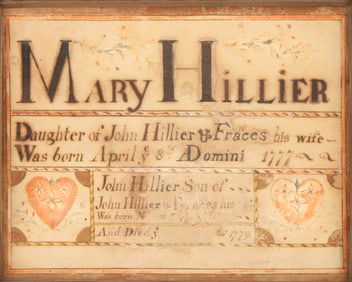 MARY HILLIER
Daughter of John Hillier & Fraces his wife
Was born April ye 8th A Domini 1777
John Hillier Son of
John Hillier & Fraces his
Was born
And Died ye 1779